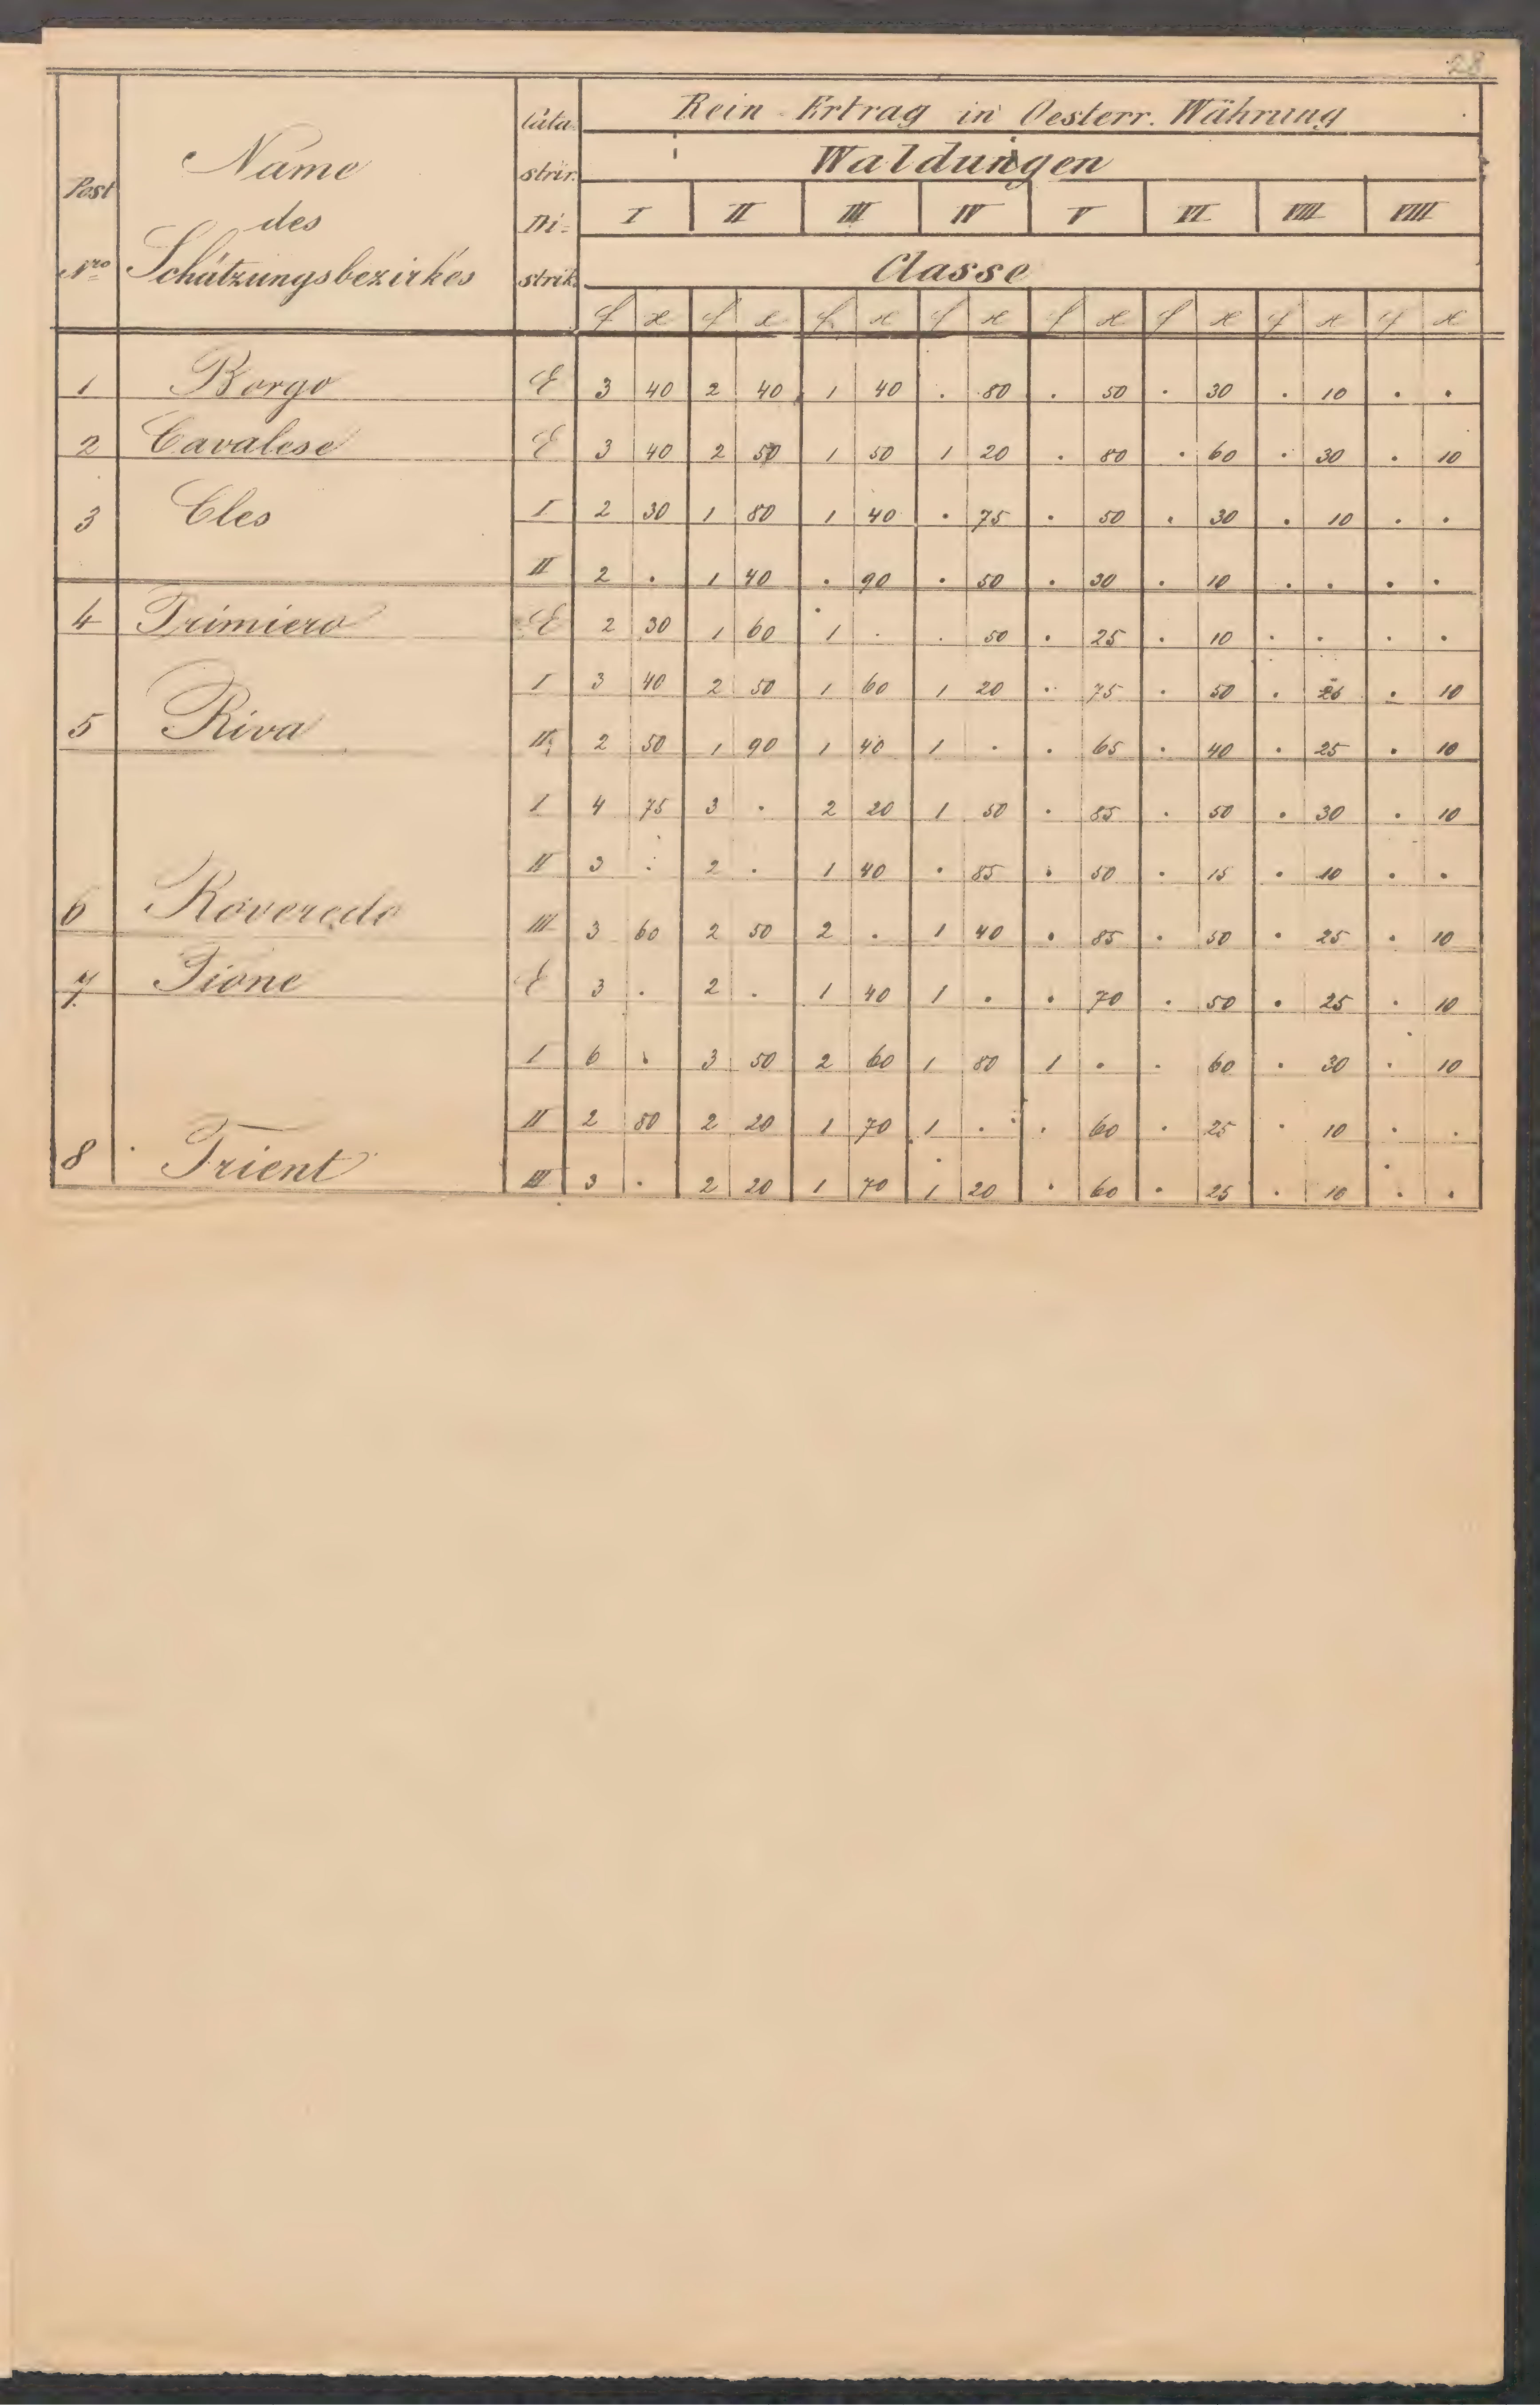 28
Post Nro Name des Schätzungsbezirkes Cata- strir. Di- strik. Rein-Ertrag in Oesterr. Währung
Waldungen
I II III IV V VI VIII VIII
Classe
f x f x f x f x f x f x f x f x
1 Borgo E 3 40 2 40 1 40 . 80 . 50 . 30 . 10 . .
2 Cavalese E 3 40 2 50 1 50 1 20 . 80 . 60 . 30 . 10
3 Cles I 2 30 1 80 1 40 . 75 . 50 . 30 . 10 . .
II 2 . 1 40 . 90 . 50 . 30 . 10 . . . .
4 Primiero E 2 30 1 60 1 . . 50 . 25 . 10 . . . .
I 3 40 2 50 1 60 1 20 . 75 . 50 . . 10
5 Riva II 2 50 1 90 1 40 1 . . 65 . 40 . 25 . 10
I 4 75 3 . 2 20 1 50 . 85 . 50 . 30 . 10
II 3 . 2 . 1 40 . 85 . 50 . 15 . 10 . .
6 Roveredo III 3 60 2 50 2 . 1 40 . 85 . 50 . 25 . 10
7 Tione E 3 . 2 . 1 40 1 . . 70 . 50 . 25 . 10
I 6 . 3 50 2 60 1 80 1 . . 60 . 30 . 10
II 2 80 2 20 1 70 1 . . 60 . 25 . 10 . .
8 Trient III 3 . 2 20 1 70 1 20 . 60 . 25 . 10 . .